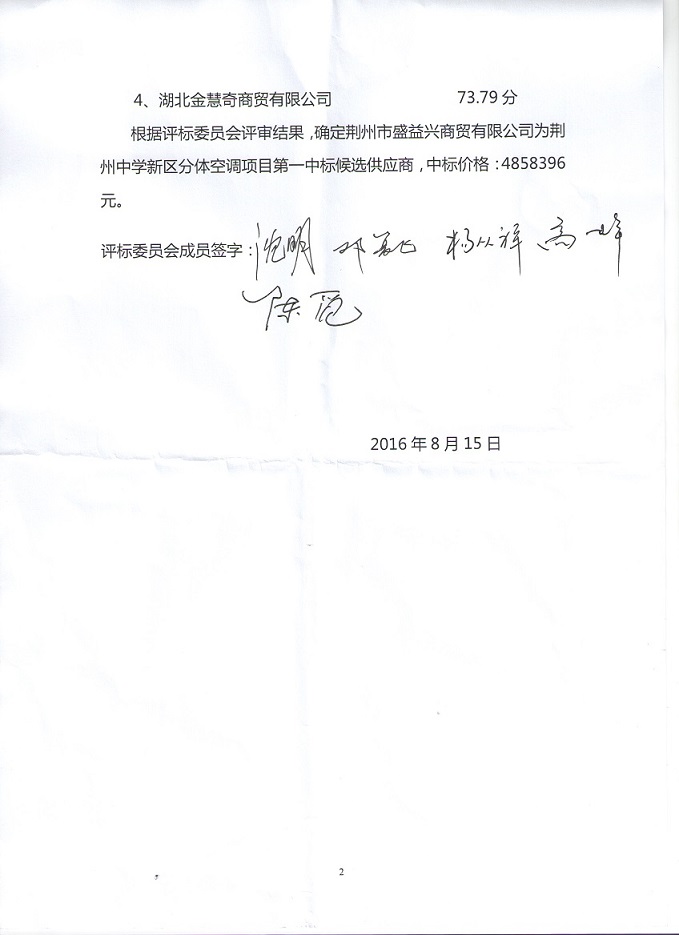 4、湖北金慧奇商贸有限公司 73.79分
根据评标委员会评审结果,确定荆州市盛益兴商贸有限公司为荆
州中学新区分体空调项目第一中标候选供应商,中标价格:4858396
元。
评标委员会成员签字: 杨从祥 高峰
2016年8月15日
2